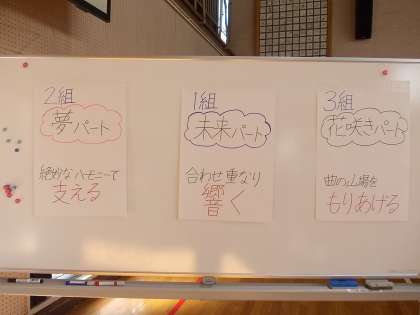 2組
夢パート
絶妙なハモニーで
支える
1組
未来パート
合わせ重なり
響く
3組
花咲きパート
曲の山場を
もりあげる